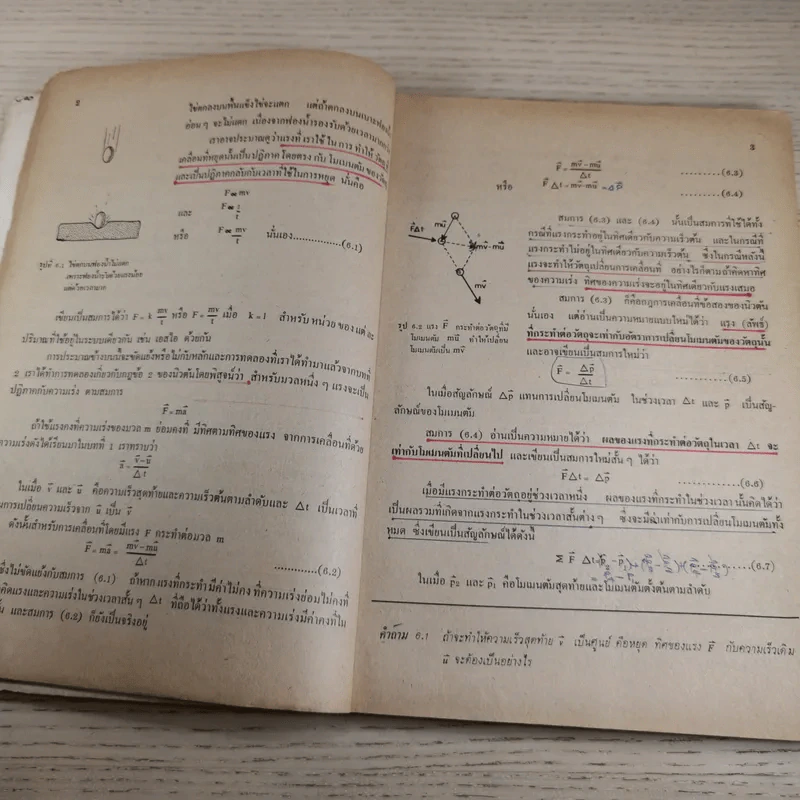 2
ไข่ตกลงบนพื้นแข็งไข่จะแตก แต่ถ้าตกลงบนเบาะฟองน้ำ
อ่อนๆ จะไม่แตก เนื่องจากฟองน้ำรองรับด้วยเวลานาน
เราอาจประมาณดูว่าแรงที่เราใช้ในการทำให้
เคลื่อนที่หยุดนั้นเป็นปฏิภาคโดยตรงกับโมเมนตัมของ
และเป็นปฏิภาคกลับกับเวลาที่ใช้ในการหยุด นั่นคือ
F ∝ mv
และ F ∝ 1/t
หรือ F ∝ mv/t นั่นเอง...............(6.1)
รูปที่ 6.1 ไข่ตกบนฟองน้ำไม่แตก
เขียนเป็นสมการได้ว่า F = k mv/t หรือ F = mv/t เมื่อ k = 1 สำหรับหน่วยของแต่ละ
ปริมาณที่ใช้อยู่ในระบบเดียวกัน เช่น เอสไอ ด้วยกัน
การประมาณข้างบนนี้จะขัดแย้งหรือไม่กับหลักและการทดลองที่เราได้ทำมาแล้วจากบทที่
2 เราได้ทำการทดลองเกี่ยวกับกฎข้อ 2 ของนิวตันโดยพิสูจน์ว่า สำหรับมวลหนึ่งๆ แรงจะเป็น
ปฏิภาคกับความเร่ง ตามสมการ
F⃗ = ma⃗
ถ้าใช้แรงคงที่ความเร่งของมวล m ย่อมคงที่ มีทิศตามทิศของแรง จากการเคลื่อนที่ด้วย
ความเร่งดังได้เรียนมาในบทที่ 1 เราทราบว่า
a⃗ = (v⃗-u⃗)/t
ในเมื่อ v⃗ และ u⃗ คือความเร็วสุดท้ายและความเร็วต้นตามลำดับและ Δt เป็นเวลาที่
การเปลี่ยนความเร็วจาก u⃗ เป็น v⃗
ดังนั้นสำหรับการเคลื่อนที่โดยมีแรง F กระทำต่อมวล m
F⃗ = ma⃗ = (mv⃗-mu⃗)/Δt ...............(6.2)
ซึ่งไม่ขัดแย้งกับสมการ (6.1) ถ้าหากแรงที่กระทำมีค่าไม่คงที่ความเร่งย่อมไม่คงที่
คิดแรงและความเร่งในช่วงเวลาสั้นๆ Δt ที่ถือได้ว่าทั้งแรงและความเร่งมีค่าคงที่ใน
และสมการ (6.2) ก็ยังเป็นจริงอยู่
3
F⃗ = (mv⃗-mu⃗)/Δt .........(6.3)
หรือ F⃗ Δt = mv⃗-mu⃗ = Δp⃗ .........(6.4)
สมการ (6.3) และ (6.4) นั้นเป็นสมการที่ใช้ได้ทั้ง
กรณีที่แรงกระทำอยู่ในทิศเดียวกับความเร็วต้น และในกรณีที่
แรงกระทำไม่อยู่ในทิศเดียวกับความเร็วต้น ซึ่งในกรณีหลังนี้
แรงจะทำให้วัตถุเปลี่ยนการเคลื่อนที่ อย่างไรก็ตามถ้าคิดหาทิศ
ของความเร่ง ทิศของความเร่งจะอยู่ในทิศเดียวกับแรงเสมอ
F⃗Δt
mu⃗
mv⃗-mu⃗
mu⃗
mv⃗
รูป 6.2 แรง F⃗ กระทำต่อวัตถุที่มี
โมเมนตัม mu⃗ ทำให้เปลี่ยน
โมเมนตัมเป็น mv⃗
สมการ (6.3) ก็คือกฎการเคลื่อนที่ข้อสองของนิวตัน
นั่นเอง แต่อ่านเป็นความหมายแบบใหม่ได้ว่า แรง (ลัพธ์)
ที่กระทำต่อวัตถุจะเท่ากับอัตราการเปลี่ยนโมเมนตัมของวัตถุนั้น
และอาจเขียนเป็นสมการใหม่ว่า
F⃗ = Δp⃗/Δt ...........(6.5)
ในเมื่อสัญลักษณ์ Δp⃗ แทนการเปลี่ยนโมเมนตัม ในช่วงเวลา Δt และ p⃗ เป็นสัญ-
ลักษณ์ของโมเมนตัม
สมการ (6.4) อ่านเป็นความหมายได้ว่า ผลของแรงที่กระทำต่อวัตถุในเวลา Δt จะ
เท่ากับโมเมนตัมที่เปลี่ยนไป และเขียนเป็นสมการใหม่สั้นๆ ได้ว่า
F⃗Δt = Δp⃗ ...........(6.6)
เมื่อมีแรงกระทำต่อวัตถุอยู่ช่วงเวลาหนึ่ง ผลของแรงที่กระทำในช่วงเวลานั้นคิดได้ว่า
เป็นผลรวมที่เกิดจากแรงกระทำในช่วงเวลาสั้นต่างๆ ซึ่งจะมีค่าเท่ากับการเปลี่ยนโมเมนตัมทั้ง
หมด ซึ่งเขียนเป็นสัญลักษณ์ได้ดังนี้
Σ F⃗ Δt .....(6.7)
ในเมื่อ p⃗₂ และ p⃗₁ คือโมเมนตัมสุดท้ายและโมเมนตัมตั้งต้นตามลำดับ
คำถาม 6.1 ถ้าจะทำให้ความเร็วสุดท้าย v⃗ เป็นศูนย์ คือหยุด ทิศของแรง F⃗ กับความเร็วเดิม
u⃗ จะต้องเป็นอย่างไร